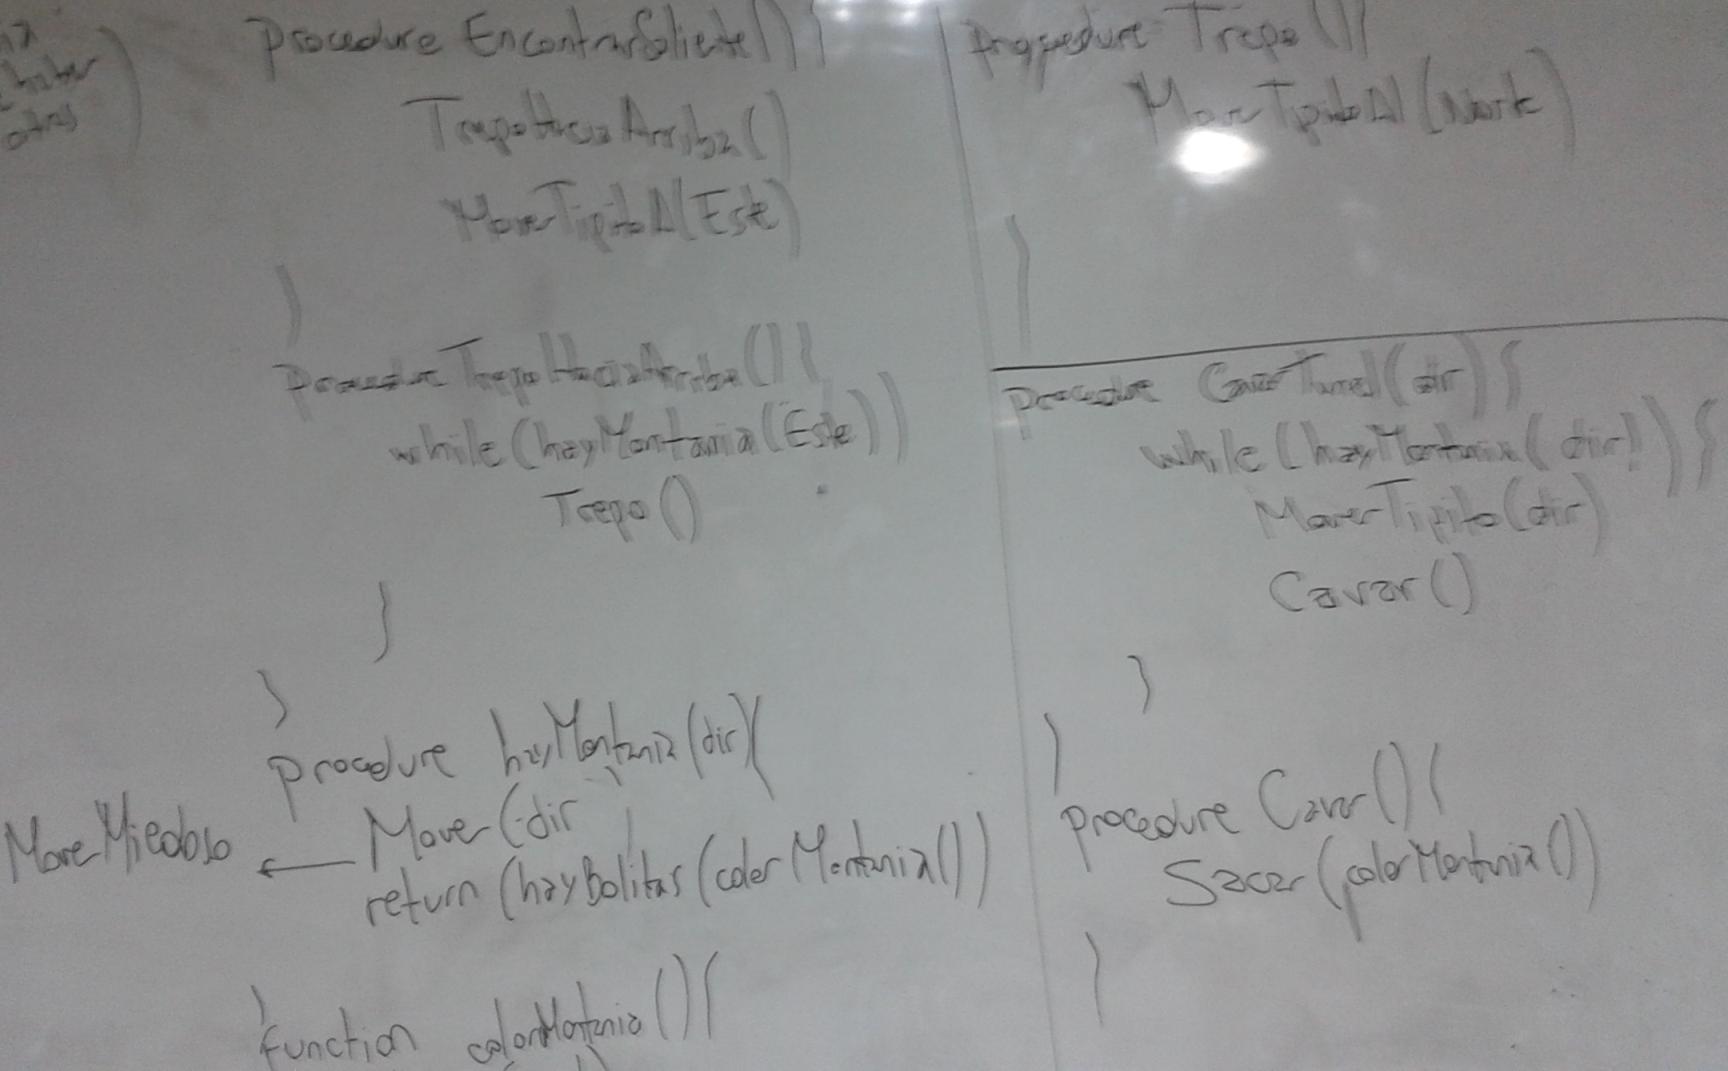 procedure EncontrarSaliente(){
TrepoHaciaArriba()
MoverTipitoAl(Este)
}
procedure TrepoHaciaArriba(){
while(hayMontania(Este))
Trepo()
}
}
procedure hayMontania(dir){
Mover(dir
MoverMiedoso ←
return(hayBolitas(colorMontania())
}
function colorMontania(){
procedure Trepo(){
MoverTipitoAl(Norte)
}
procedure CavarTunel(dir){
while(hayMontania(dir)){
MoverTipito(dir)
Cavar()
}
}
procedure Cavar(){
Sacar(colorMontania())
}